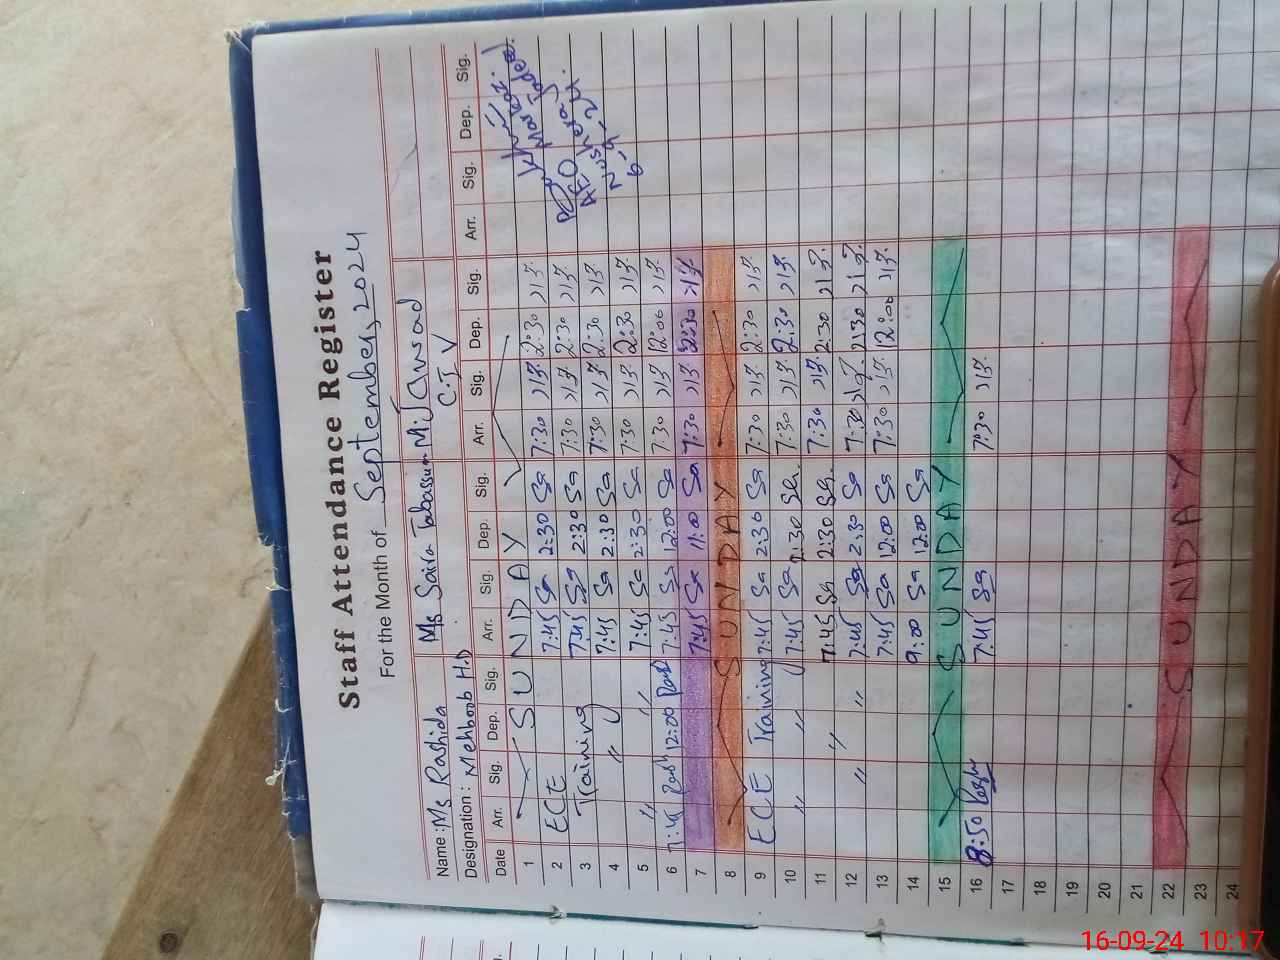 Staff Attendance Register
For the Month of September, 2024
Name : Ms Rashida Ms Saira Tabassum M. Jawad
Designation : Mehboob H.D C.T V
Date Arr. Sig. Dep. Sig. Arr. Sig. Dep. Sig. Arr. Sig. Dep. Sig. Arr. Sig. Dep. Sig.
1 SUNDAY
2 ECE 7:45 Sa 2:30 Sa 7:30 2:30
3 Training 7:45 Sa 2:30 Sa 7:30 2:30
4 〃 7:45 Sa 2:30 Sa 7:30 2:30
5 〃 〃 7:45 Sa 2:30 Sa 7:30 2:30
6 12:00 7:45 Sa 12:00 Sa 7:30 12:00
7 7:45 Sa 11:00 Sa 7:30 2:30
8 SUNDAY
9 ECE Training 7:45 Sa 2:30 Sa 7:30 2:30
10 〃 〃 7:45 Sa 2:30 Sa 7:30 2:30
11 〃 7:45 Sa 2:30 Sa 7:30 2:30
12 〃 〃 7:45 Sa 2:30 Sa 7:30 2:30
13 7:45 Sa 12:00 Sa 7:30 12:00
14 9:00 Sa 12:00 Sa
15 SUNDAY
16 8:50 7:45 Sa 7:30
17
18
19
20
21
22 SUNDAY
23
24
AEO
6-9-24
16-09-24 10:17